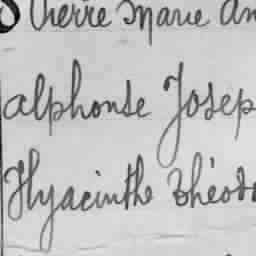 Pierre Marie An
alphonse Josep
Hyacinthe Théodo